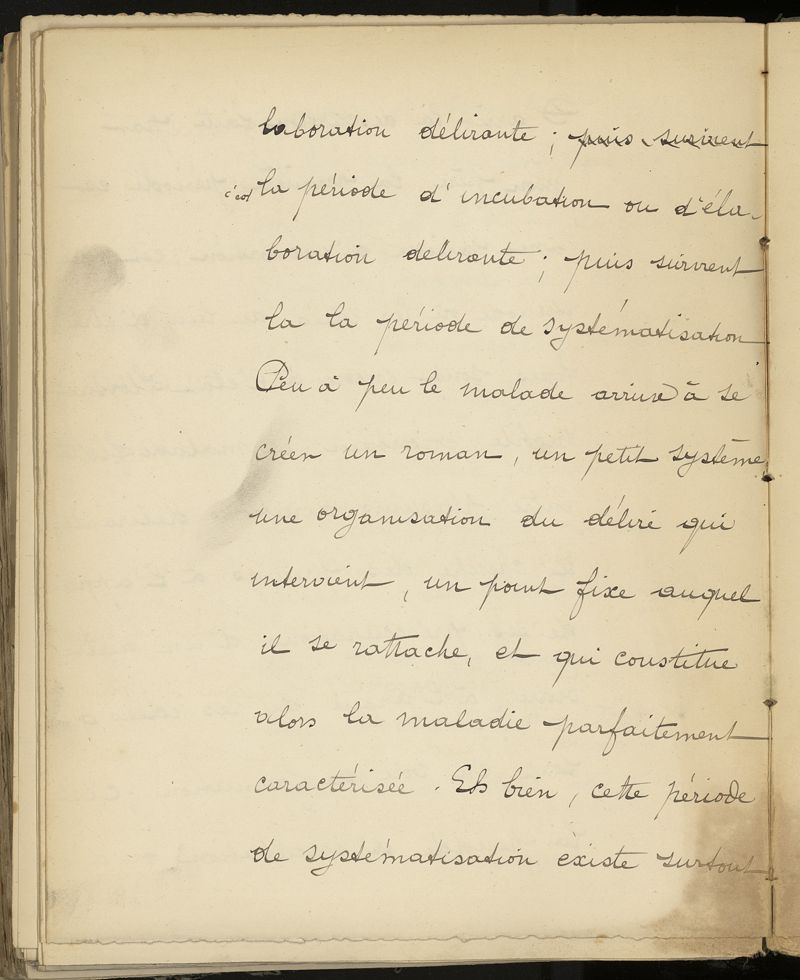 laboration délirante ; puis survient
c'est la période d'incubation ou d'éla-
boration délirante ; puis survient
la la période de systématisation
Peu à peu le malade arrive à se
créer un roman, un petit système,
une organisation du délire qui
intervient, un point fixe auquel
il se rattache, et qui constitue
alors la maladie parfaitement
caractérisée. Eh bien, cette période
de systématisation existe surtout